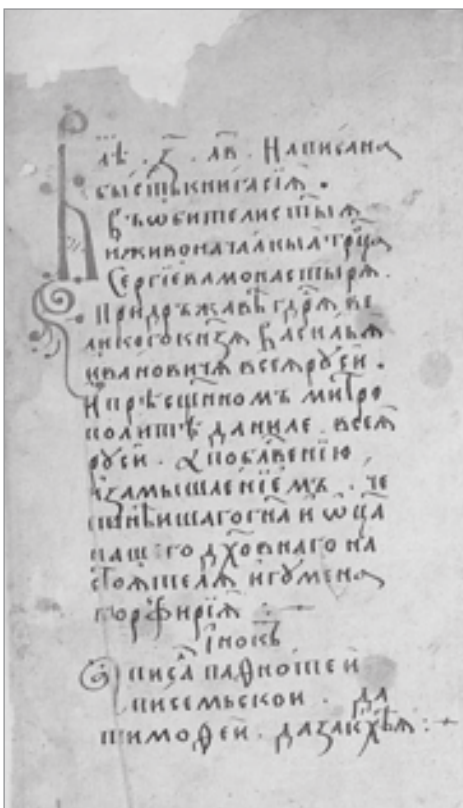 В лѣⷮ . ҂з҃ . л҃в . Написана
бысть книга сїѧ .
Въ ѡбители ст҃ыѧ
и живоначалныѧ трⷪ҇ца
Сергїева монастырѧ .
При дръжавѣ гдⷭ҇рѧ ве
ликого кн҃ѕѧ василиѧ
ивановичѧ всеѧ рꙋсїи .
и прѣсщ҃енномъ митро
политѣ даниле . всеѧ
рꙋсїи . а по бл҃веннїю
и замышленїемъ . че
стнѣишаго гн҃а и ѡц҃а
нашего дх҃овнаго на
стоѧтелѧ игумена
порфирїѧ :~
їнокъ
писа паѳнотеи
писемьскои . да
тимоѳеи . да закхѣѧ :~